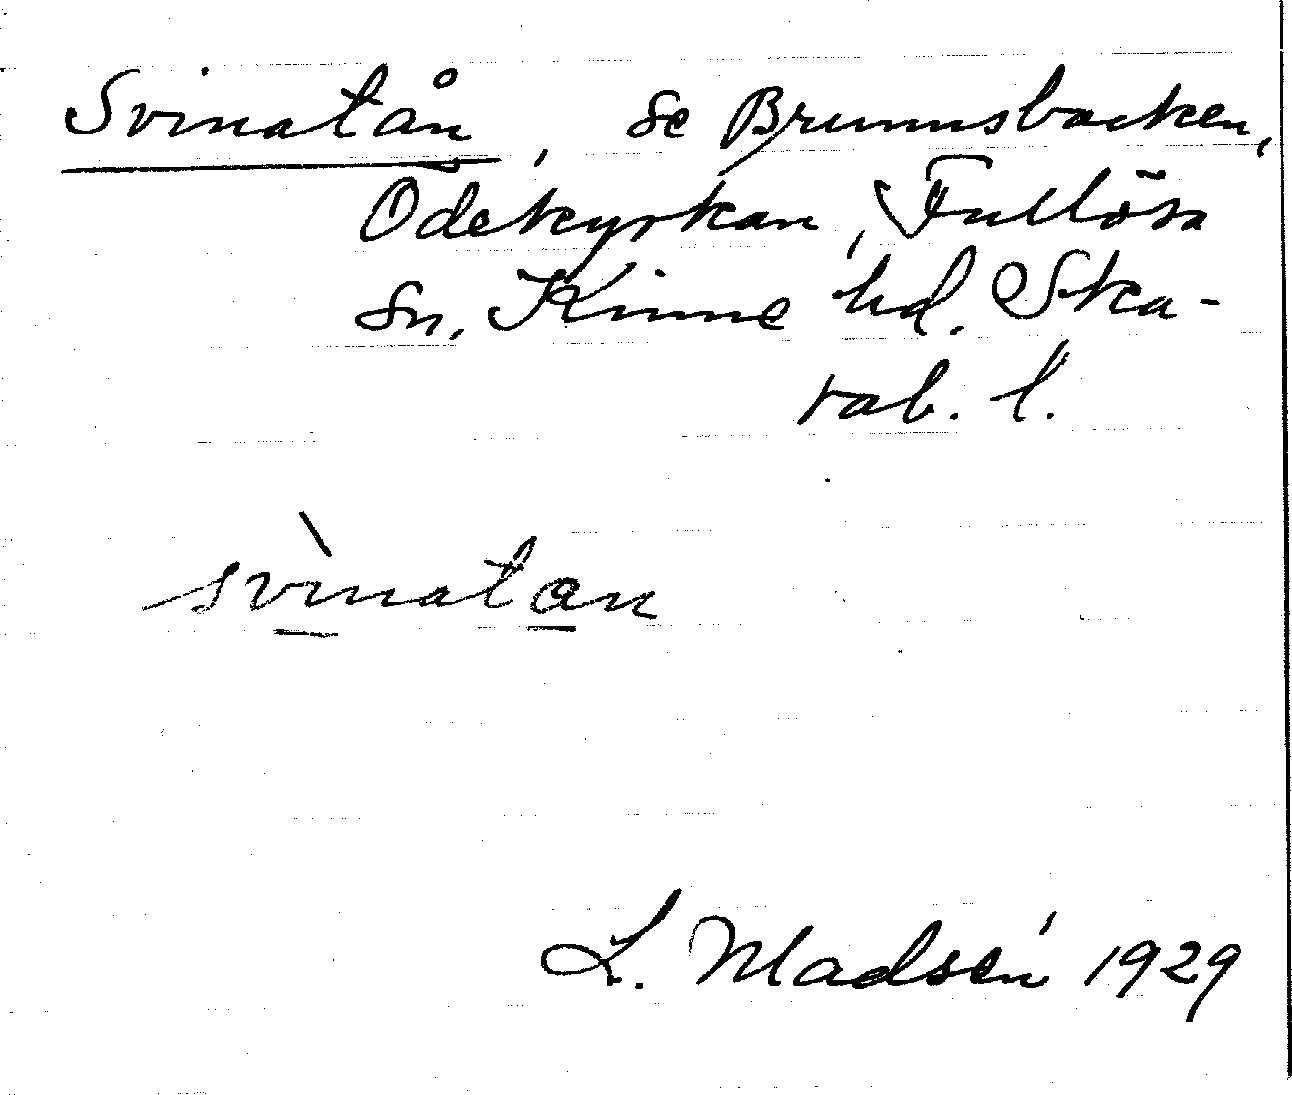 Svinatån, se Brunnsbacken,
Ödekyrkan, Fullösa
sn, Kinne hd. Ska-
rab. l.
svìnatan
L. Madsén 1929